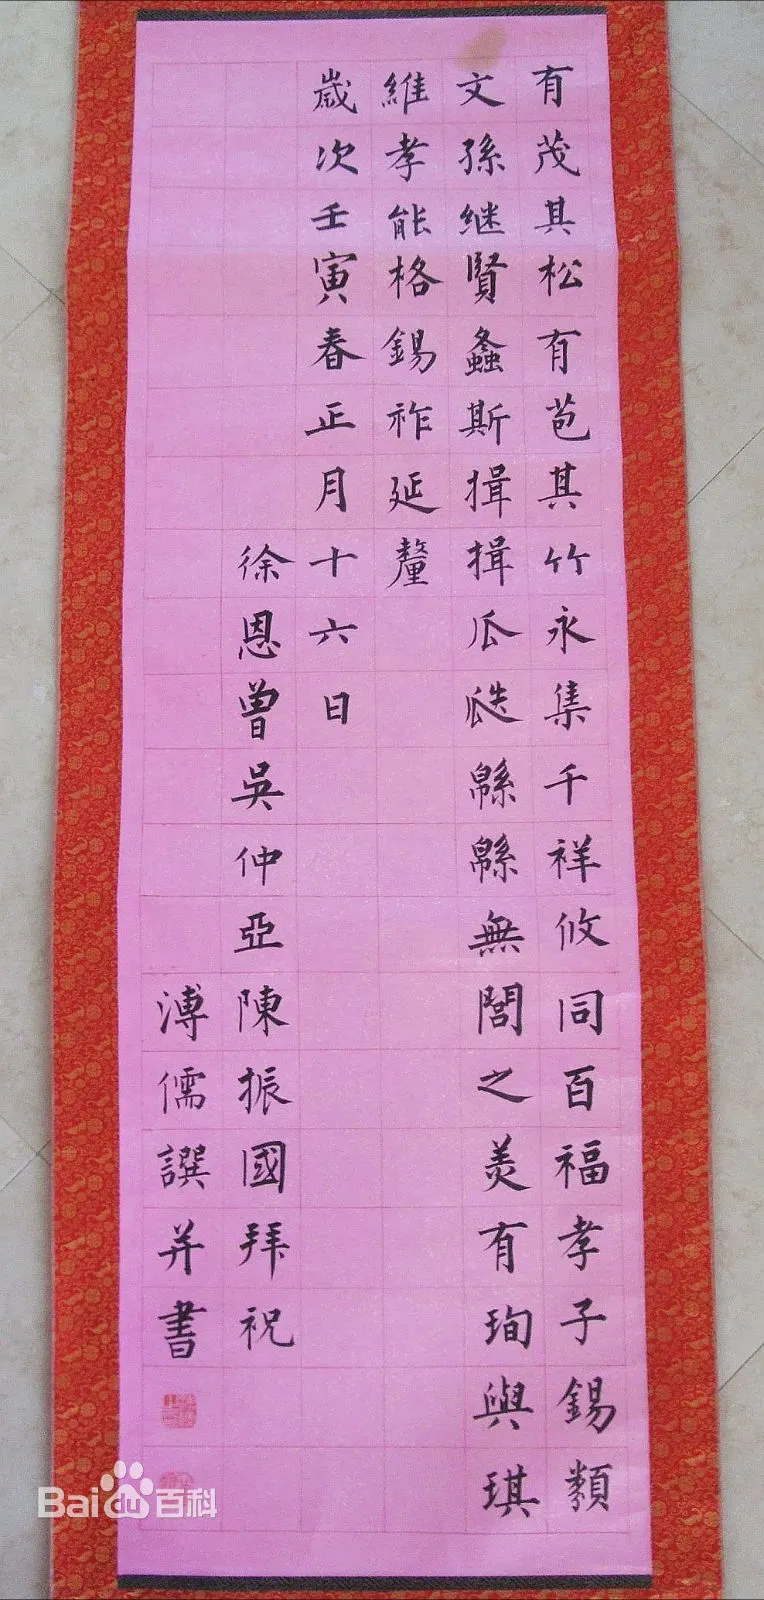 有茂其松有苞其竹永集千祥攸同百福孝子錫類
文孫继賢螽斯揖揖瓜瓞緜緜無閭之美有珣與琪
維孝能格錫祚延釐
歲次壬寅春正月十六日
徐恩曾吳仲亞陳振國拜祝
溥儒譔并書
Bai百科